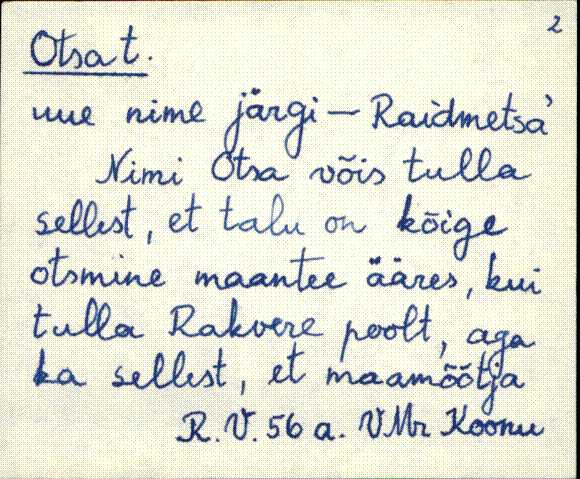 2
Otsa t.
uue nime järgi — Raidmetsa
Nimi Otsa võis tulla
sellest, et talu on kõige
otsmine maantee ääres, kui
tulla Rakvere poolt, aga
ka sellest, et maamõõtja
R. V. 56 a. VMr Koonu